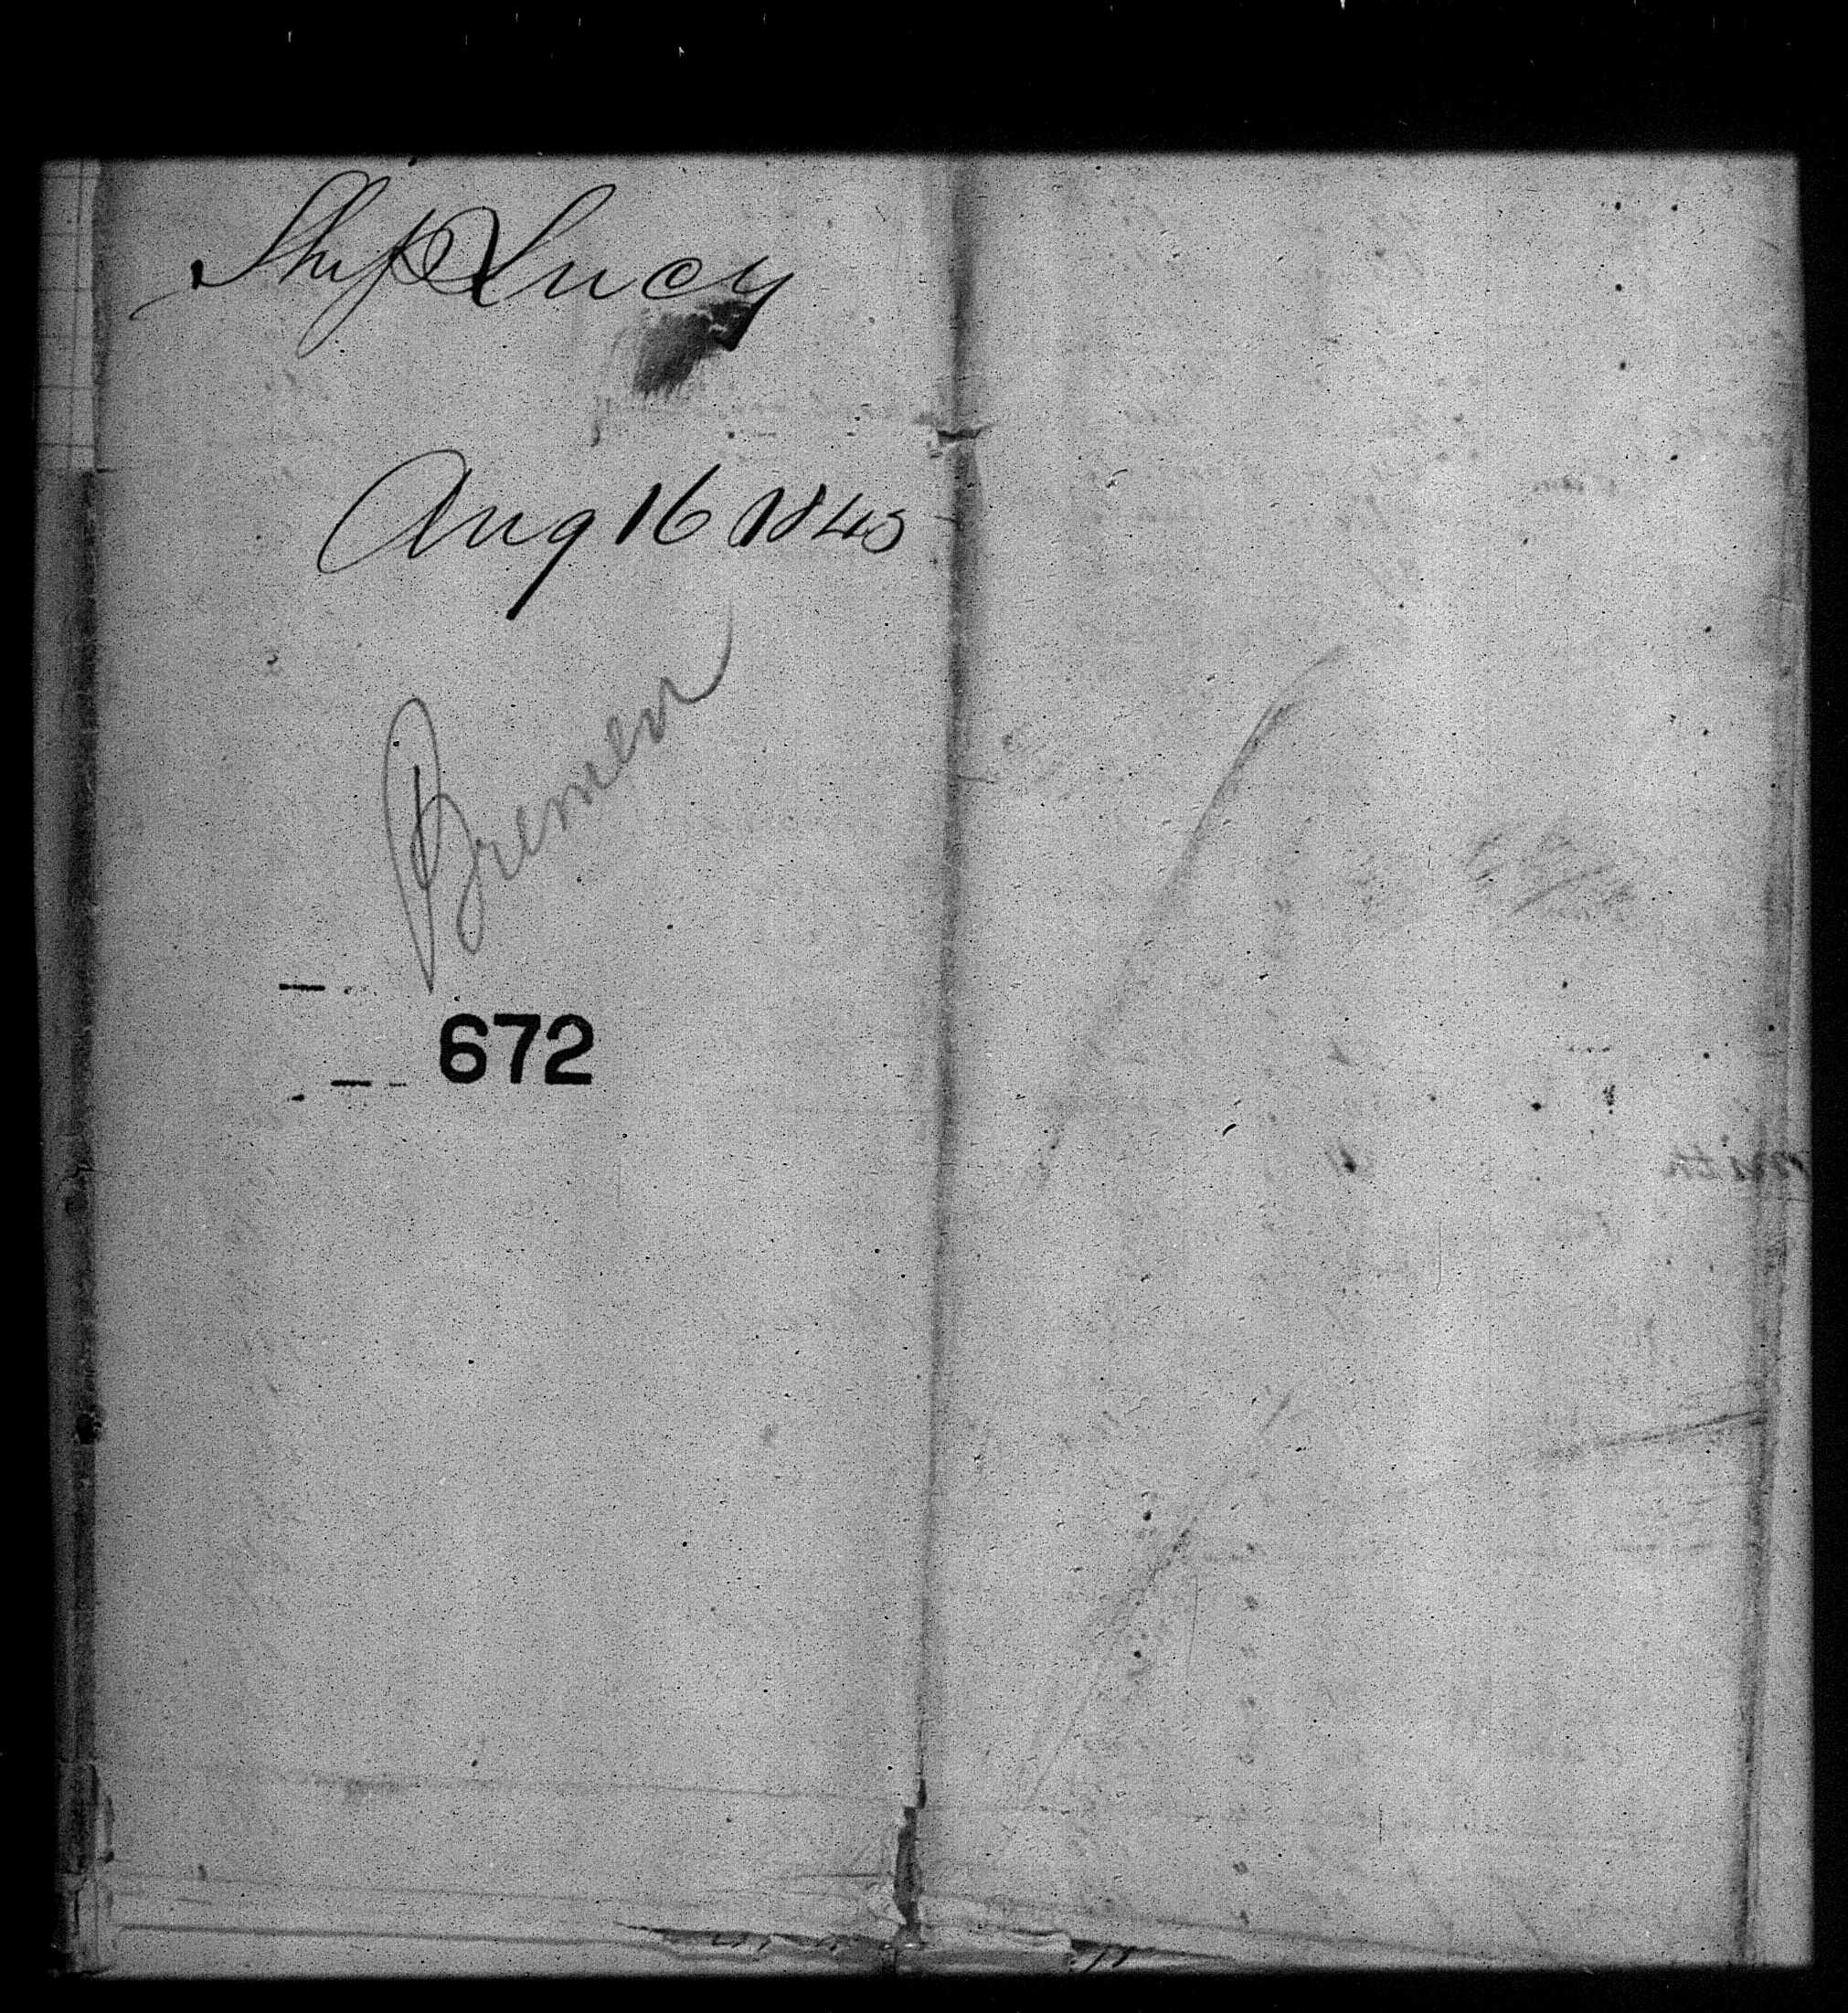 Ship Lucy
Aug 16 1845
Bremen
672